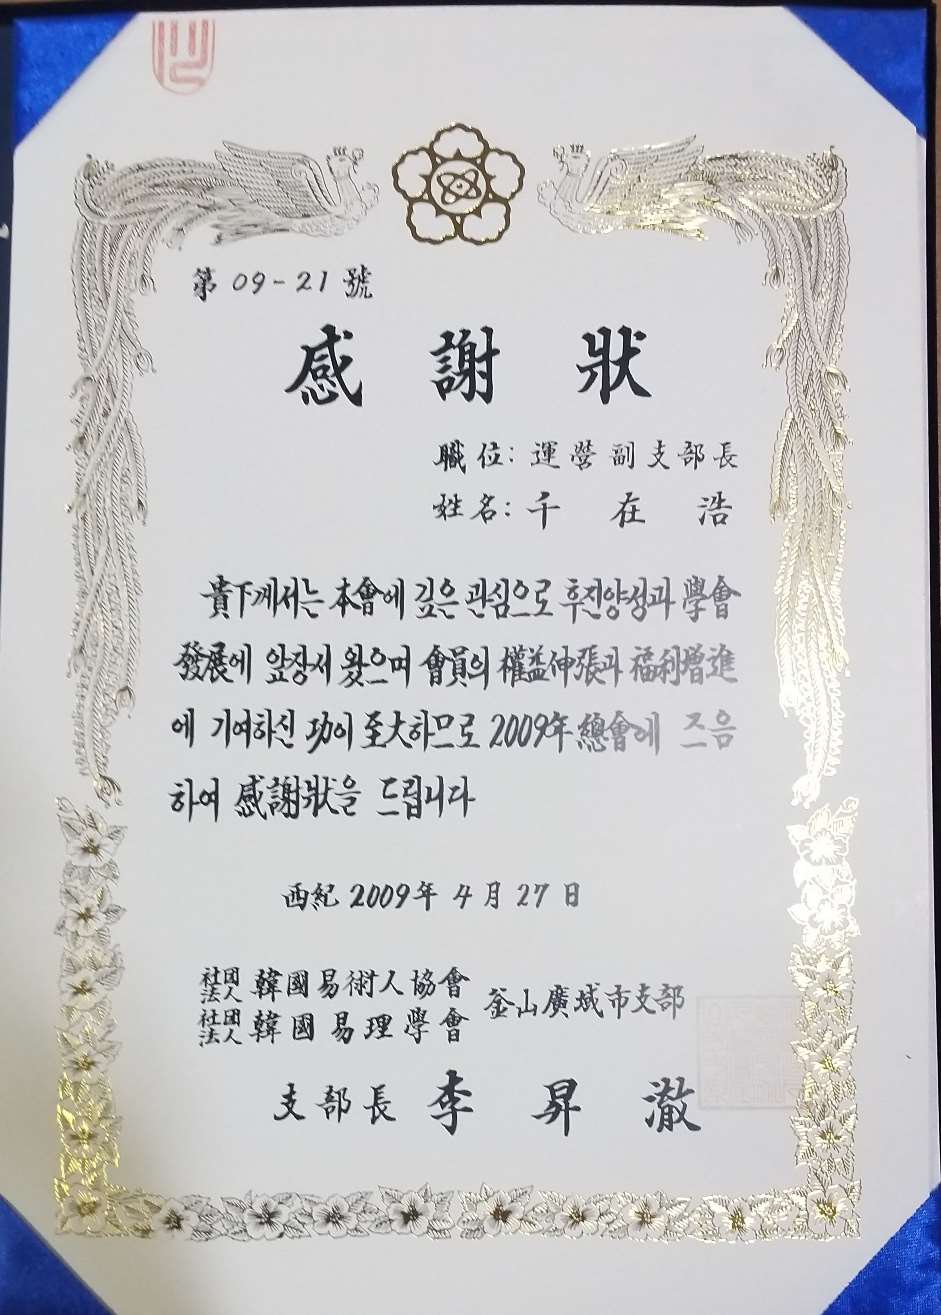 第 09-21 號
感謝狀
職位: 運營副支部長
姓名: 千在浩
貴下께서는 本會에 깊은 관심으로 후진양성과 學會
發展에 앞장서 왔으며 會員의 權益伸張과 福利增進
에 기여하신 功이 至大하므로 2009年 總會에 즈음
하여 感謝狀을 드립니다
西紀 2009年 4月 27日
社団法人 韓國易術人協會
社団法人 韓國易理學會 釜山廣域市支部
支部長 李昇澈